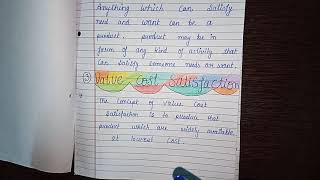 Anything which can satisfy
need and want can be a
product. product may be in
form of any kind of activity that
can satisfy someone needs or want.
③ Value Cost Satisfaction
The concept of value cost
satisfaction is to produce that
product which are widely available
at lowest cost.